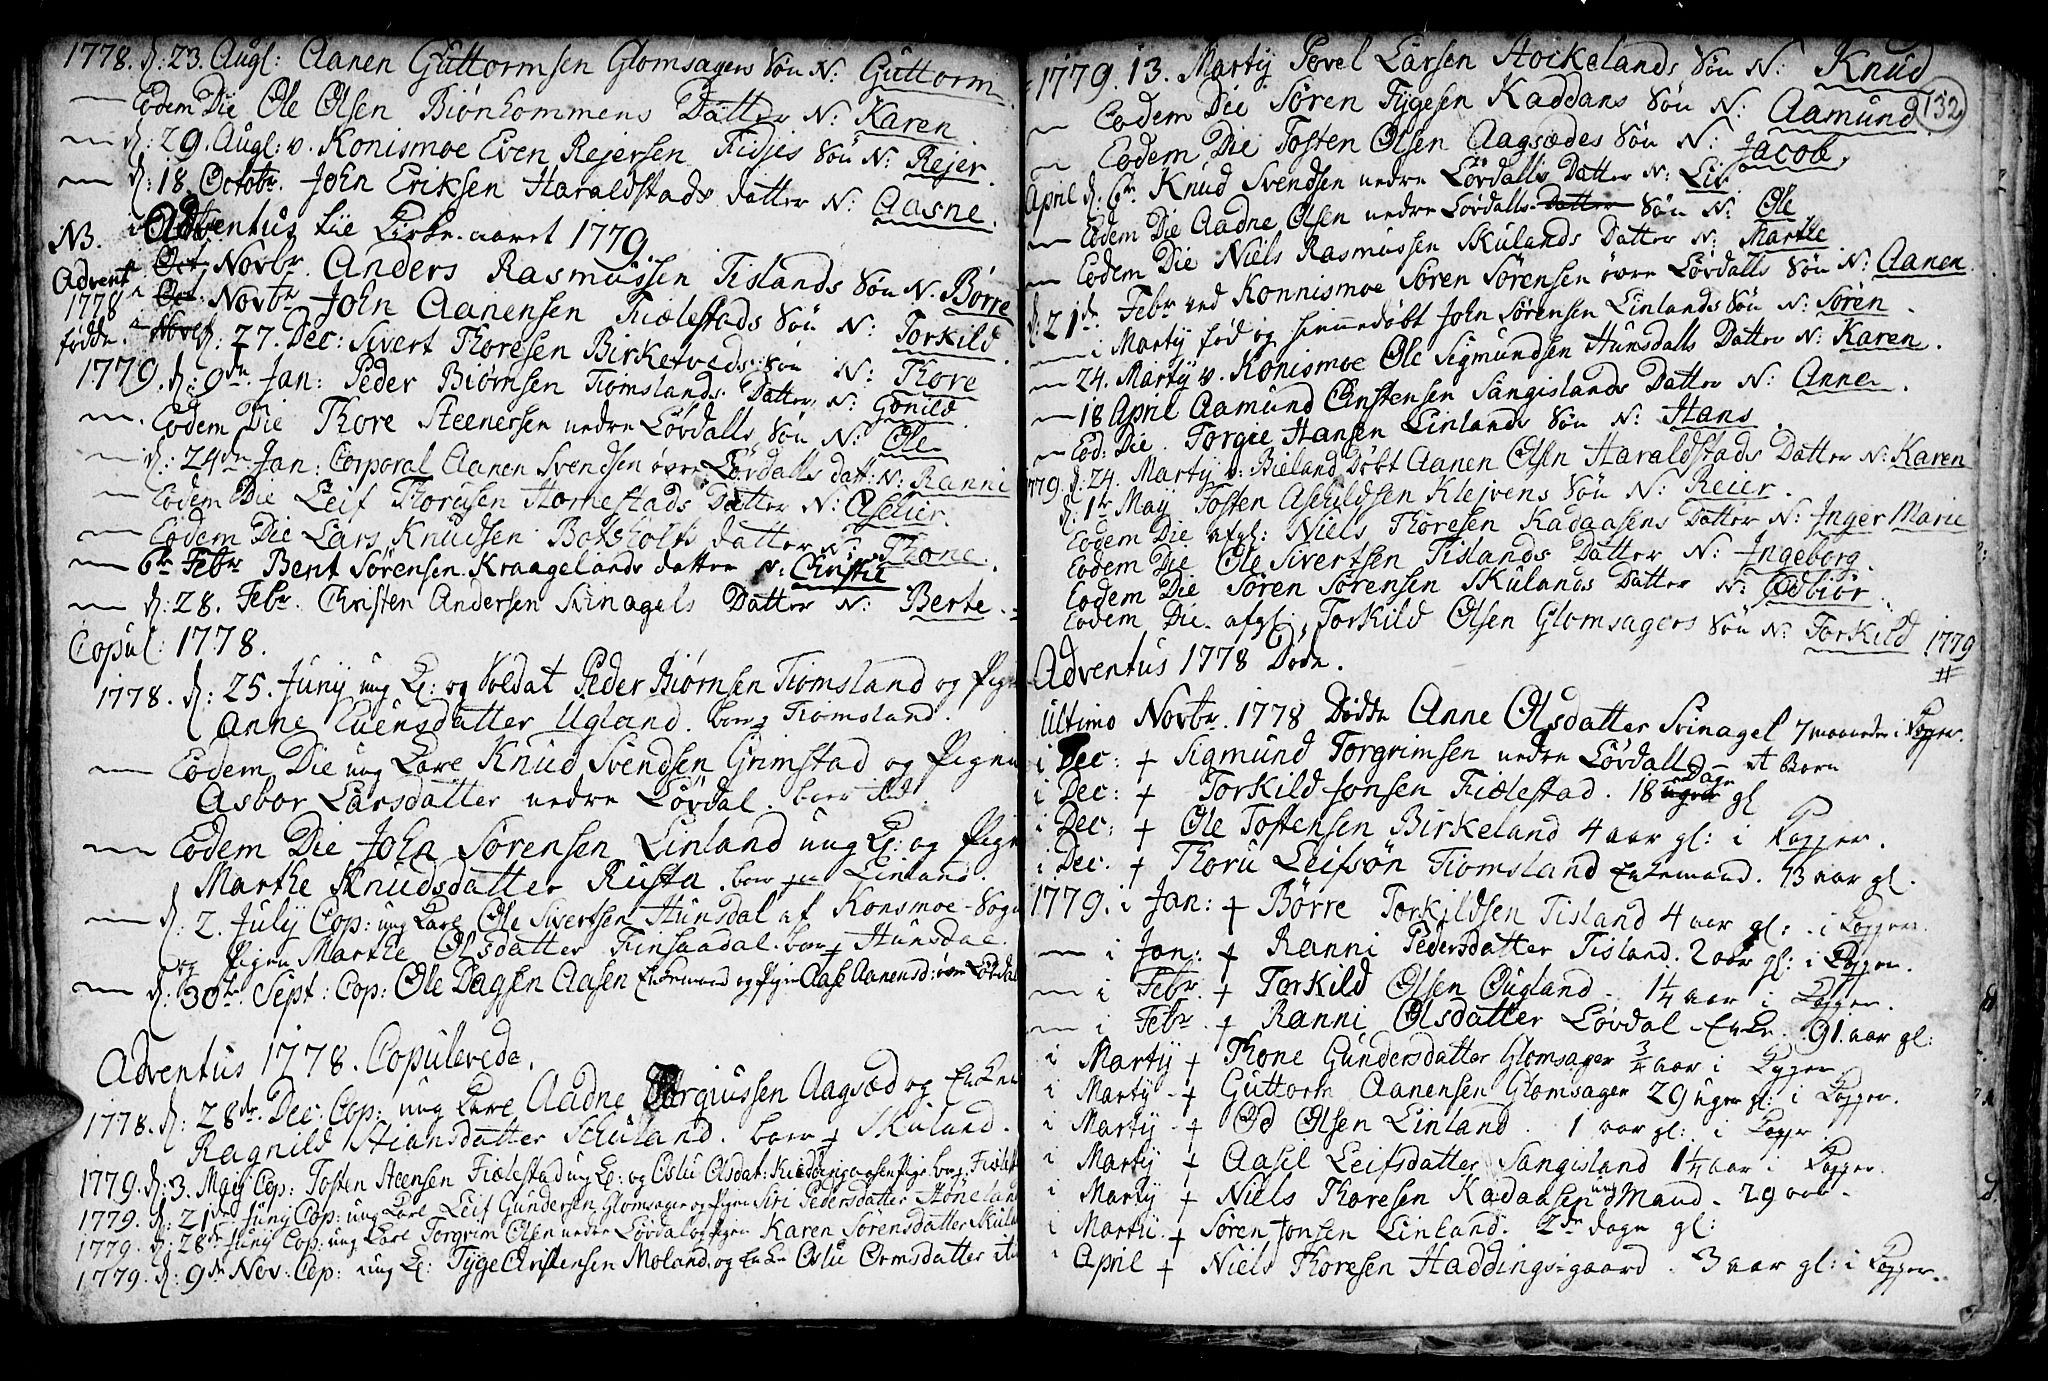 1778. d: 23. Augl: Aanen Guttormsen Glomsagers Søn N: Guttorm
Eodem Die Ole Olsen Biønkommens Datter N: Karen
d: 29. Augl: v. Konismoe Even Rejersen Fidjes Søn N: Rejer.
d: 18. Octobr. John Eriksen Haraldstads datter N: Aasne.
NB. Adventus 1779.
Advent Novbr. Anders Rasmussen Tislands Søn N. Børre
1778 Novbr John Aanensen Fiælestads Søn N: Torkild
fødde. d: 27. Dec: Sivert Thoresen Birketveds Søn N: Thore
1779. d: 9de Jan: Peder Biørnsen Tiomslands Datter N: Gonild
Eodem Die Thore Steenersen nedre Løvdalls Søn N: Ole
d: 24de Jan: Corporal Aanen Svendsen øvre Løvdalls datt: N: Ranni
Eodem Die Leif Thorusen Homestads Datter N: Aselier.
Eodem Die Lars Knudsen datter N: Thone.
6te Febr Bent Sørensen Kraagelands datter N: Christie
d: 28. Febr. Christen Andersen Svinagels Datter N: Berte.
Copul: 1778.
1778. d: 25. Junij ung K: og Soldat Peder Biørnsen Tiomsland og Pigen
Anne Evensdatter Ugland. boer Tiomsland.
Eodem Die ung Karl Knud Svendsen Grimstad og Pigen
Asbor Larsdatter nedre Løvdal. boer ibd:
Eodem Die John Sørensen Linland ung K: og Pigen
Marthe Knudsdatter Rusta. boer Linland.
d: 2. Julij Cop: ung Karl Ole Sivertsen Hunsdal af Konsmoe-Sogn
og Pigen Marthe Olsdatter Finsaadal. boer Hunsdal.
d: 30te Sept: Cop: Ole Dagsen Aasen Enkemand og Pigen Aase Aanensd: øvre Løvdal
Adventus 1778. Copulerede.
1778. d: 28de Dec: Cop: ung Karl Aadne Aagsæd og Enken
Ragnild Stiansdatter Schuland. boer Skuland.
1779. d: 3. Maij Cop: Tosten Steensen Fiælestad ung K: og Oslu Olsdat: Pige boer Fiælest
1779. d: 21de Junij Cop: ung Karl Leif Gundersen Glomsager og Pigen Siri Pedersdatter Høneland
1779. d: 28de Junij Cop: ung Karl Torgrim Olsen nedre Løvdal og Pigen Karen Sørensdatter Skuland
1779. d: 9de Nov: Cop: ung K: Tyge Christensen Moland, og Enke Oslu Ormsdatter
1779. 13. Martij Povel Larsen Stockelands Søn N: Knud
132
Eodem Die Søren Tygesen Kaddans Søn N: Aamund
Eodem Die Tosten Olsen Aagsædes Søn N: Jacob.
April d: 6te Knud Svendsen nedre Løvdalls Datter N: Liv
Eodem Die Aadne Olsen nedre Løvdalls Datter Søn N: Ole
Eodem Die Niels Rasmussen Skulands Datter N: Marthe
d: 21de Febr ved Konnismoe Søren Sørensen øvre Løvdalls Søn N: Aanen
i Martij fød og hiemmedøbt John Sørensen Linlands Søn N: Søren.
24. Martij v. Konismoe Ole Sigmundsen Hunsdalls Datter N: Karen.
18 April Aamund Christensen Sangislands Datter N: Anne.
Eod: Die. Torgie Hansen Linlands Søn N: Hans
1779. d. 24. Martij v: Bieland Døbt Aanen Olsen Haraldstads Datter N: Karen
d: 1te Maij Tosten Aschildsen Klejvens Søn N: Reier.
Eodem Die afgl: Niels Thoresen Kadaasens Datter N: Inger Marie
Eodem Die Ole Sivertsen Tislands Datter N: Ingeborg.
Eodem Die Søren Sørensen Skulands Datter N: Odbiør.
Eodem Die. afgl: Torkild Olsen Glomsagers Søn N: Torkild 1779
Adventus 1778 Døde.
Ultimo Novbr. 1778 Dødde Anne Olsdatter Svinagel 7 maaneder i Kopper.
i Dec: + Sigmund Torgrimsen nedre Løvdalls et Barn
i Dec: + Torkild Jonsen Fiælestad. 18 Dage gl
i Dec: + Ole Tostensen Birkeland 4 aar gl: i Kopper.
i Dec. + Thoru Leifsøn Tiomsland Enkemand. 73 aar gl.
1779. i Jan: + Børre Torkildsen Tisland 4 aar gl: i Kopper.
i Jan: + Ranni Pedersdatter Tisland. 2 aar gl: i Kopper.
i Febr. + Torkild Olsen Ougland 1¼ aar i Kopper.
i Febr. + Ranni Olsdatter Løvdal Enke. 91. aar gl:
i Martij + Thone Gundersdatter Glomsager ¾ aar i Kopper
i Martij + Guttorm Aanensen Glomsager 29 uger gl: i Kopper.
i Martij + Od Olsen Linland. 1 aar gl: i Kopper
i Martij + Aasel Leifsdatter Sangisland 1¼ aar i Kopper.
i Martij + Niels Thoresen Kadaasen ung Mand. 29 aar.
i Martij. + Søren Jonsen Linland. 2de dage gl:
i April + Niels Thoresen Haddingsgaard. 3 aar gl: i Kopper.